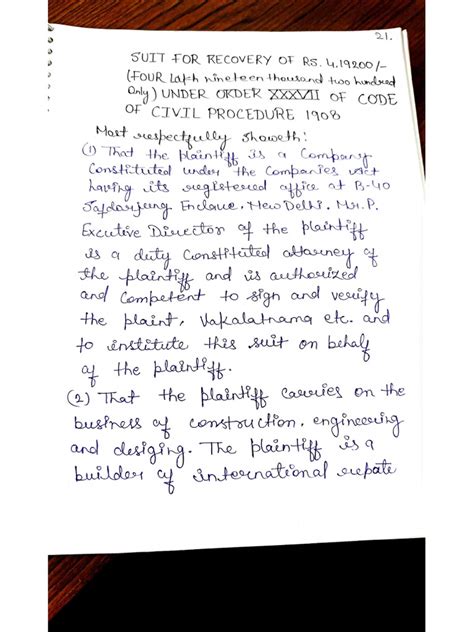 21.
SUIT FOR RECOVERY OF RS. 4.19200/-
(FOUR Lakh nineteen thousand two hundred
Only) UNDER ORDER XXXVII OF CODE
OF CIVIL PROCEDURE 1908
Most respectfully showeth:
(1) That the plaintiff is a Company
Constituted under the Companies act
having its registered office at B-40
Safdarjung Enclave, New Delhi. Mr. P.
Excutive Director of the plaintiff
is a duty Constituted attorney of
the plaintiff and is authorized
and Competent to sign and verify
the plaint, Vakalatnama etc. and
to institute this suit on behalf
of the plaintiff.
(2) That the plaintiff carries on the
business of construction, engineering
and desiging. The plaintiff is a
builder of international repute